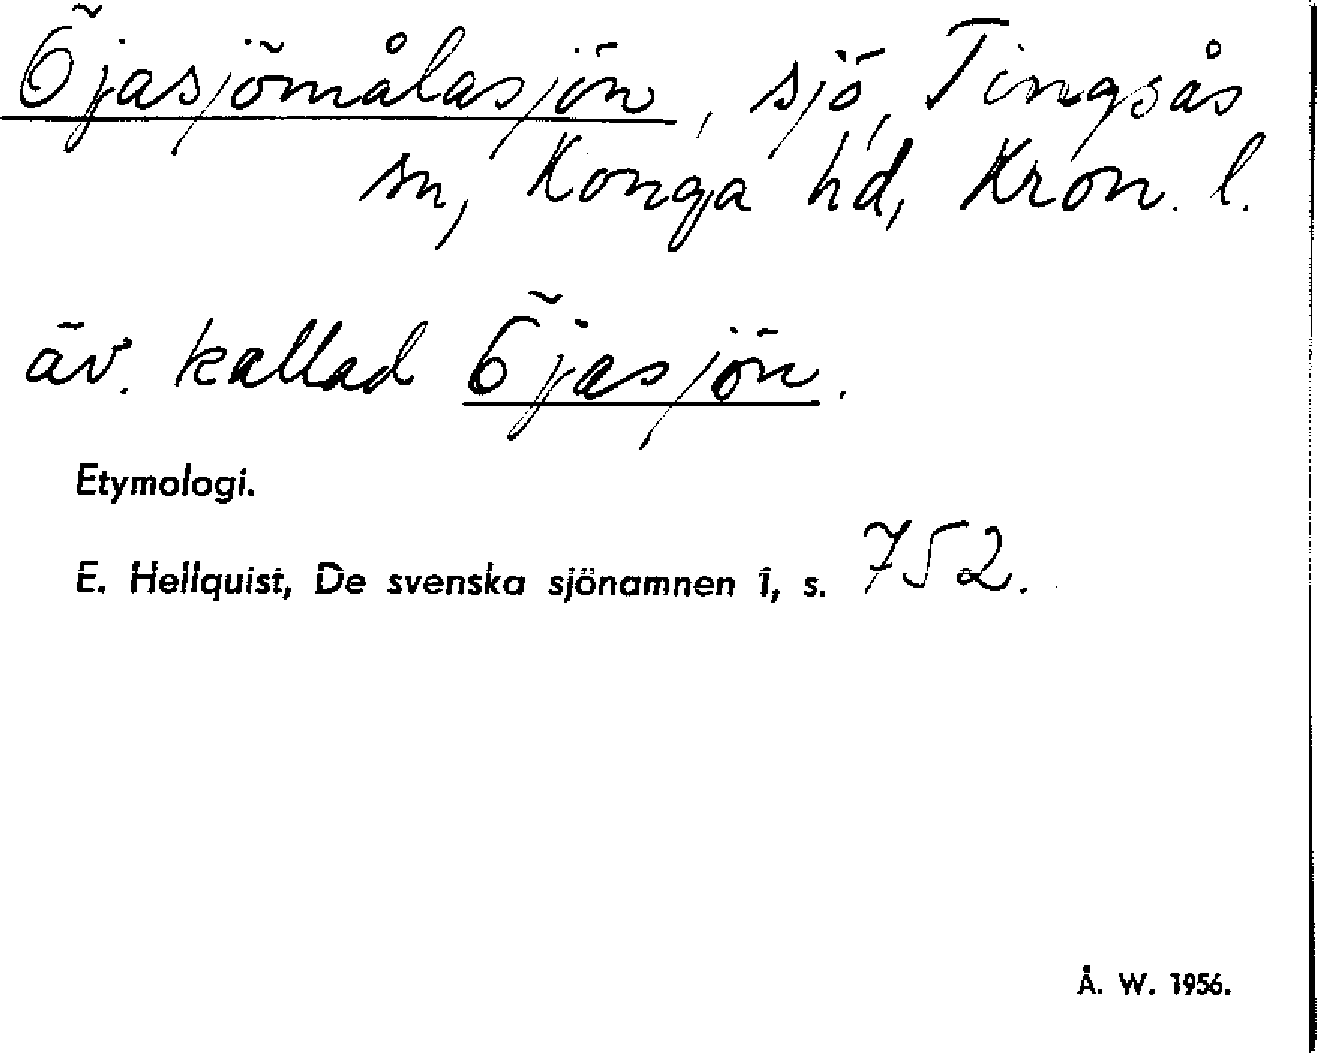 Öjasjömålasjön, sjö, Tingsås
sn, Konga hd, Kron. l.
äv. kallad Öjasjön.
Etymologi.
E. Hellquist, De svenska sjönamnen 1, s. 752.
Å. W. 1956.